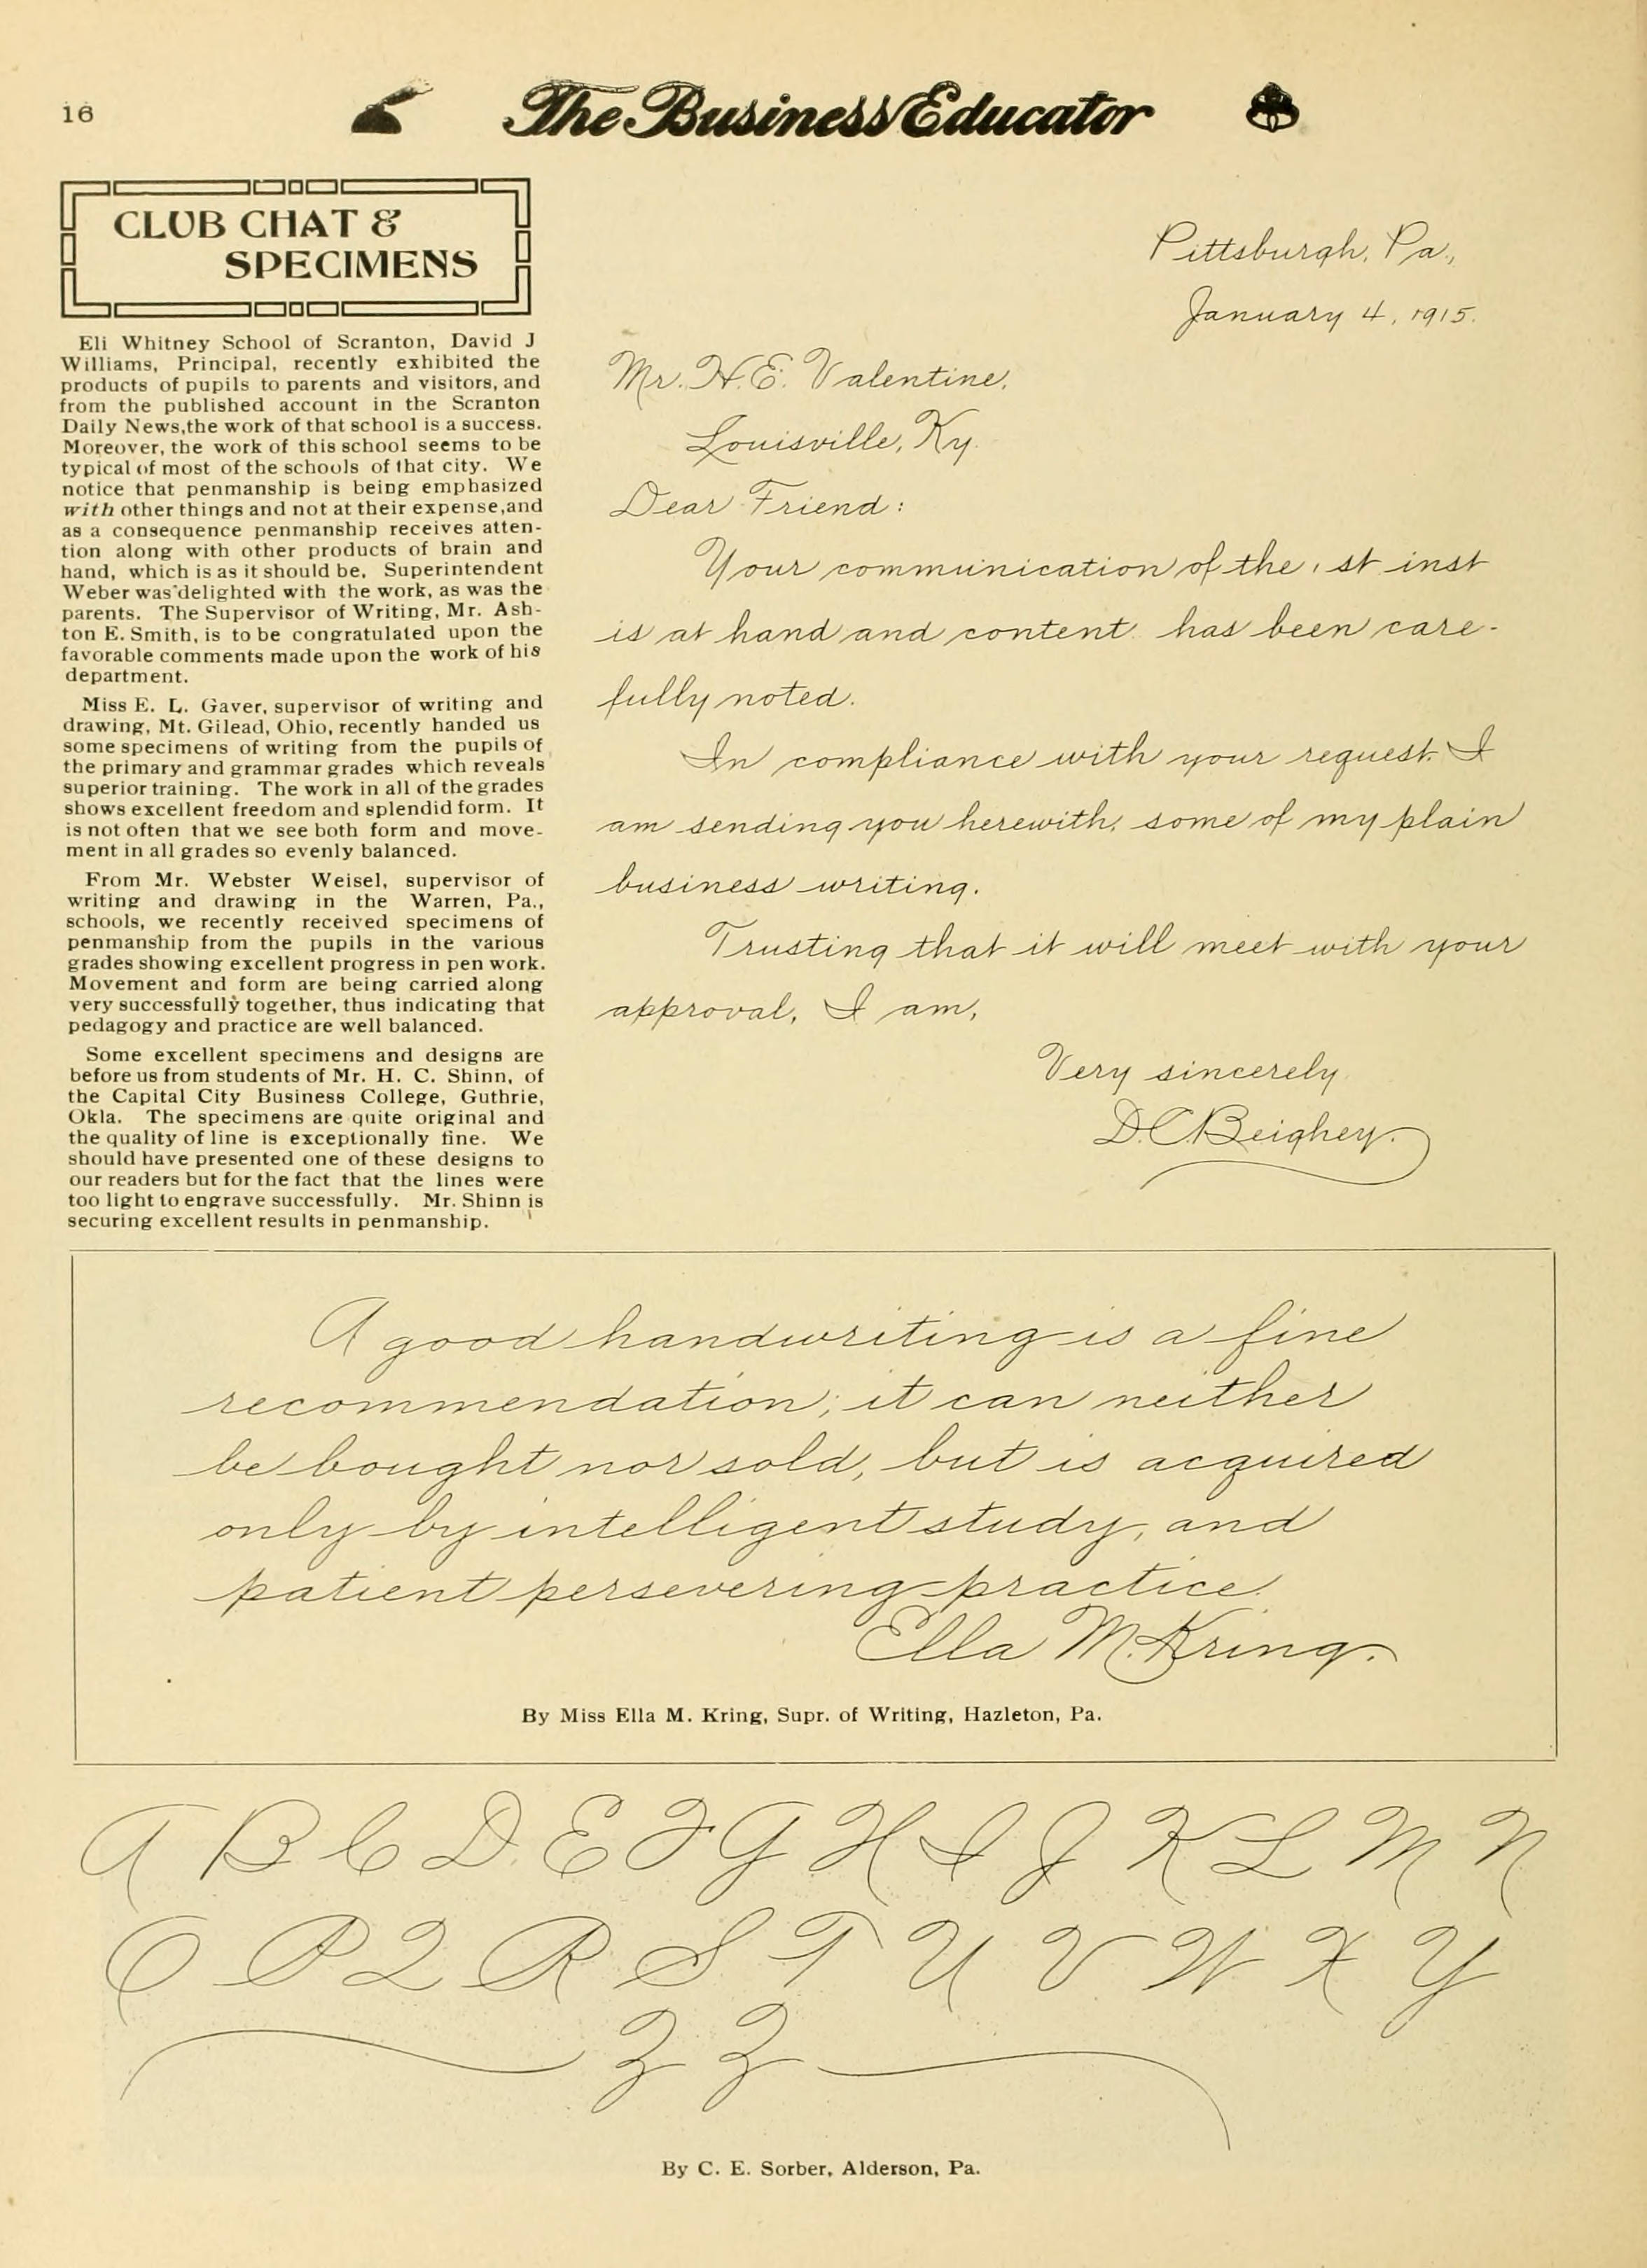 16
The Business Educator
CLUB CHAT &
SPECIMENS
Eli Whitney School of Scranton, David J
Williams, Principal, recently exhibited the
products of pupils to parents and visitors, and
from the published account in the Scranton
Daily News,the work of that school is a success.
Moreover, the work of this school seems to be
typical of most of the schools of that city. We
notice that penmanship is being emphasized
with other things and not at their expense,and
as a consequence penmanship receives atten-
tion along with other products of brain and
hand, which is as it should be. Superintendent
Weber was delighted with the work, as was the
parents. The Supervisor of Writing, Mr. Ash-
ton E. Smith, is to be congratulated upon the
favorable comments made upon the work of his
department.
Miss E. L. Gaver, supervisor of writing and
drawing, Mt. Gilead, Ohio, recently handed us
some specimens of writing from the pupils of
the primary and grammar grades which reveals
superior training. The work in all of the grades
shows excellent freedom and splendid form. It
is not often that we see both form and move-
ment in all grades so evenly balanced.
From Mr. Webster Weisel, supervisor of
writing and drawing in the Warren, Pa.,
schools, we recently received specimens of
penmanship from the pupils in the various
grades showing excellent progress in pen work.
Movement and form are being carried along
very successfully together, thus indicating that
pedagogy and practice are well balanced.
Some excellent specimens and designs are
before us from students of Mr. H. C. Shinn, of
the Capital City Business College, Guthrie,
Okla. The specimens are quite original and
the quality of line is exceptionally fine. We
should have presented one of these designs to
our readers but for the fact that the lines were
too light to engrave successfully. Mr. Shinn is
securing excellent results in penmanship.
Pittsburgh, Pa.,
January 4, 1915.
Mr. H. E. Valentine,
Louisville, Ky.
Dear Friend:
Your communication of the 1st inst
is at hand and content has been care-
fully noted.
In compliance with your request I
am sending you herewith, some of my plain
business writing.
Trusting that it will meet with your
approval, I am,
Very sincerely
D. C. Beighey.
A good handwriting is a fine
recommendation; it can neither
be bought nor sold, but is acquired
only by intelligent study, and
patient persevering practice.
Ella M. Kring.
By Miss Ella M. Kring, Supr. of Writing, Hazleton, Pa.
A B C D E F G H I J K L M N
O P Q R S T U V W X Y
Z Z
By C. E. Sorber, Alderson, Pa.